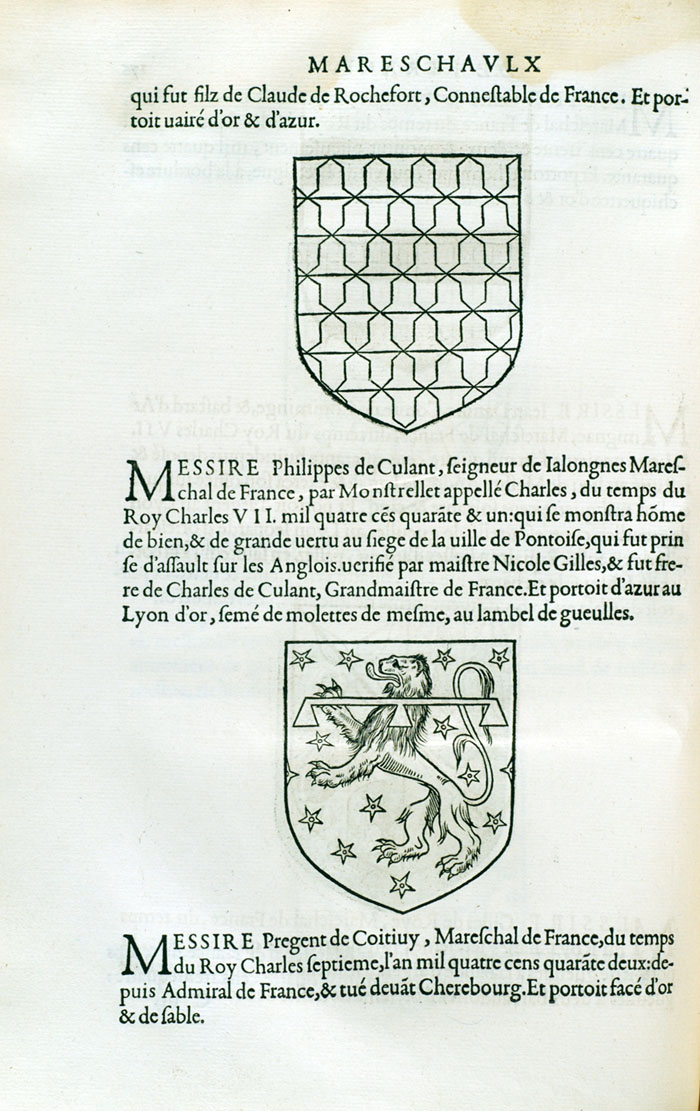 MARESCHAVLX
qui fut filz de Claude de Rochefort, Conneſtable de France. Et por-
toit uairé d'or & d'azur.
MESSIRE Philippes de Culant, ſeigneur de Ialongnes Mareſ-
chal de France, par Monſtrellet appellé Charles, du temps du
Roy Charles VII. mil quatre cẽs quarãte & un: qui ſe monſtra hõme
de bien, & de grande uertu au ſiege de la uille de Pontoiſe, qui fut prin
ſe d'aſſault ſur les Anglois. uerifié par maiſtre Nicole Gilles, & fut fre-
re de Charles de Culant, Grandmaiſtre de France. Et portoit d'azur au
Lyon d'or, ſemé de molettes de meſme, au lambel de gueulles.
MESSIRE Pregent de Coitiuy, Mareſchal de France, du temps
du Roy Charles ſeptieme, l'an mil quatre cens quarãte deux: de-
puis Admiral de France, & tué deuãt Cherebourg. Et portoit facé d'or
& de ſable.